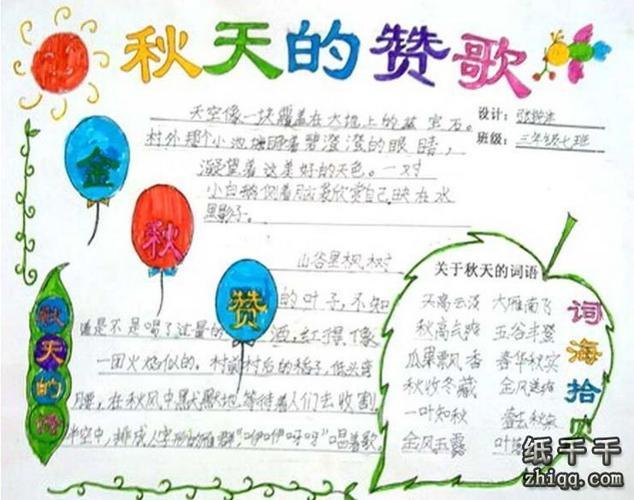 秋天的赞歌
天空像一块覆盖在大地上的蓝宝石。
设计：
村外那个小池塘睁着碧澄澄的眼睛，
班级：三年级七班
凝望着这美好的天色。一对
小白鹅侧着脑袋欣赏自己映在水
里影子。
金
秋
赞
山谷里枫树
的叶子，不知
道是不是喝了过量的酒，红得像
一团火焰似的。村前村后的稻子，低头弯
腰，在秋风中默默地等待着人们去收割
半空中，排成人字形的雁群，"咿咿呀呀"唱着歌。
秋天的诗
关于秋天的词语
天高云淡 大雁南飞
秋高气爽 五谷丰登
瓜果飘香 春华秋实
秋收冬藏 金风送爽
一叶知秋
金风玉露
词海拾贝
纸千千
zhiqq.com